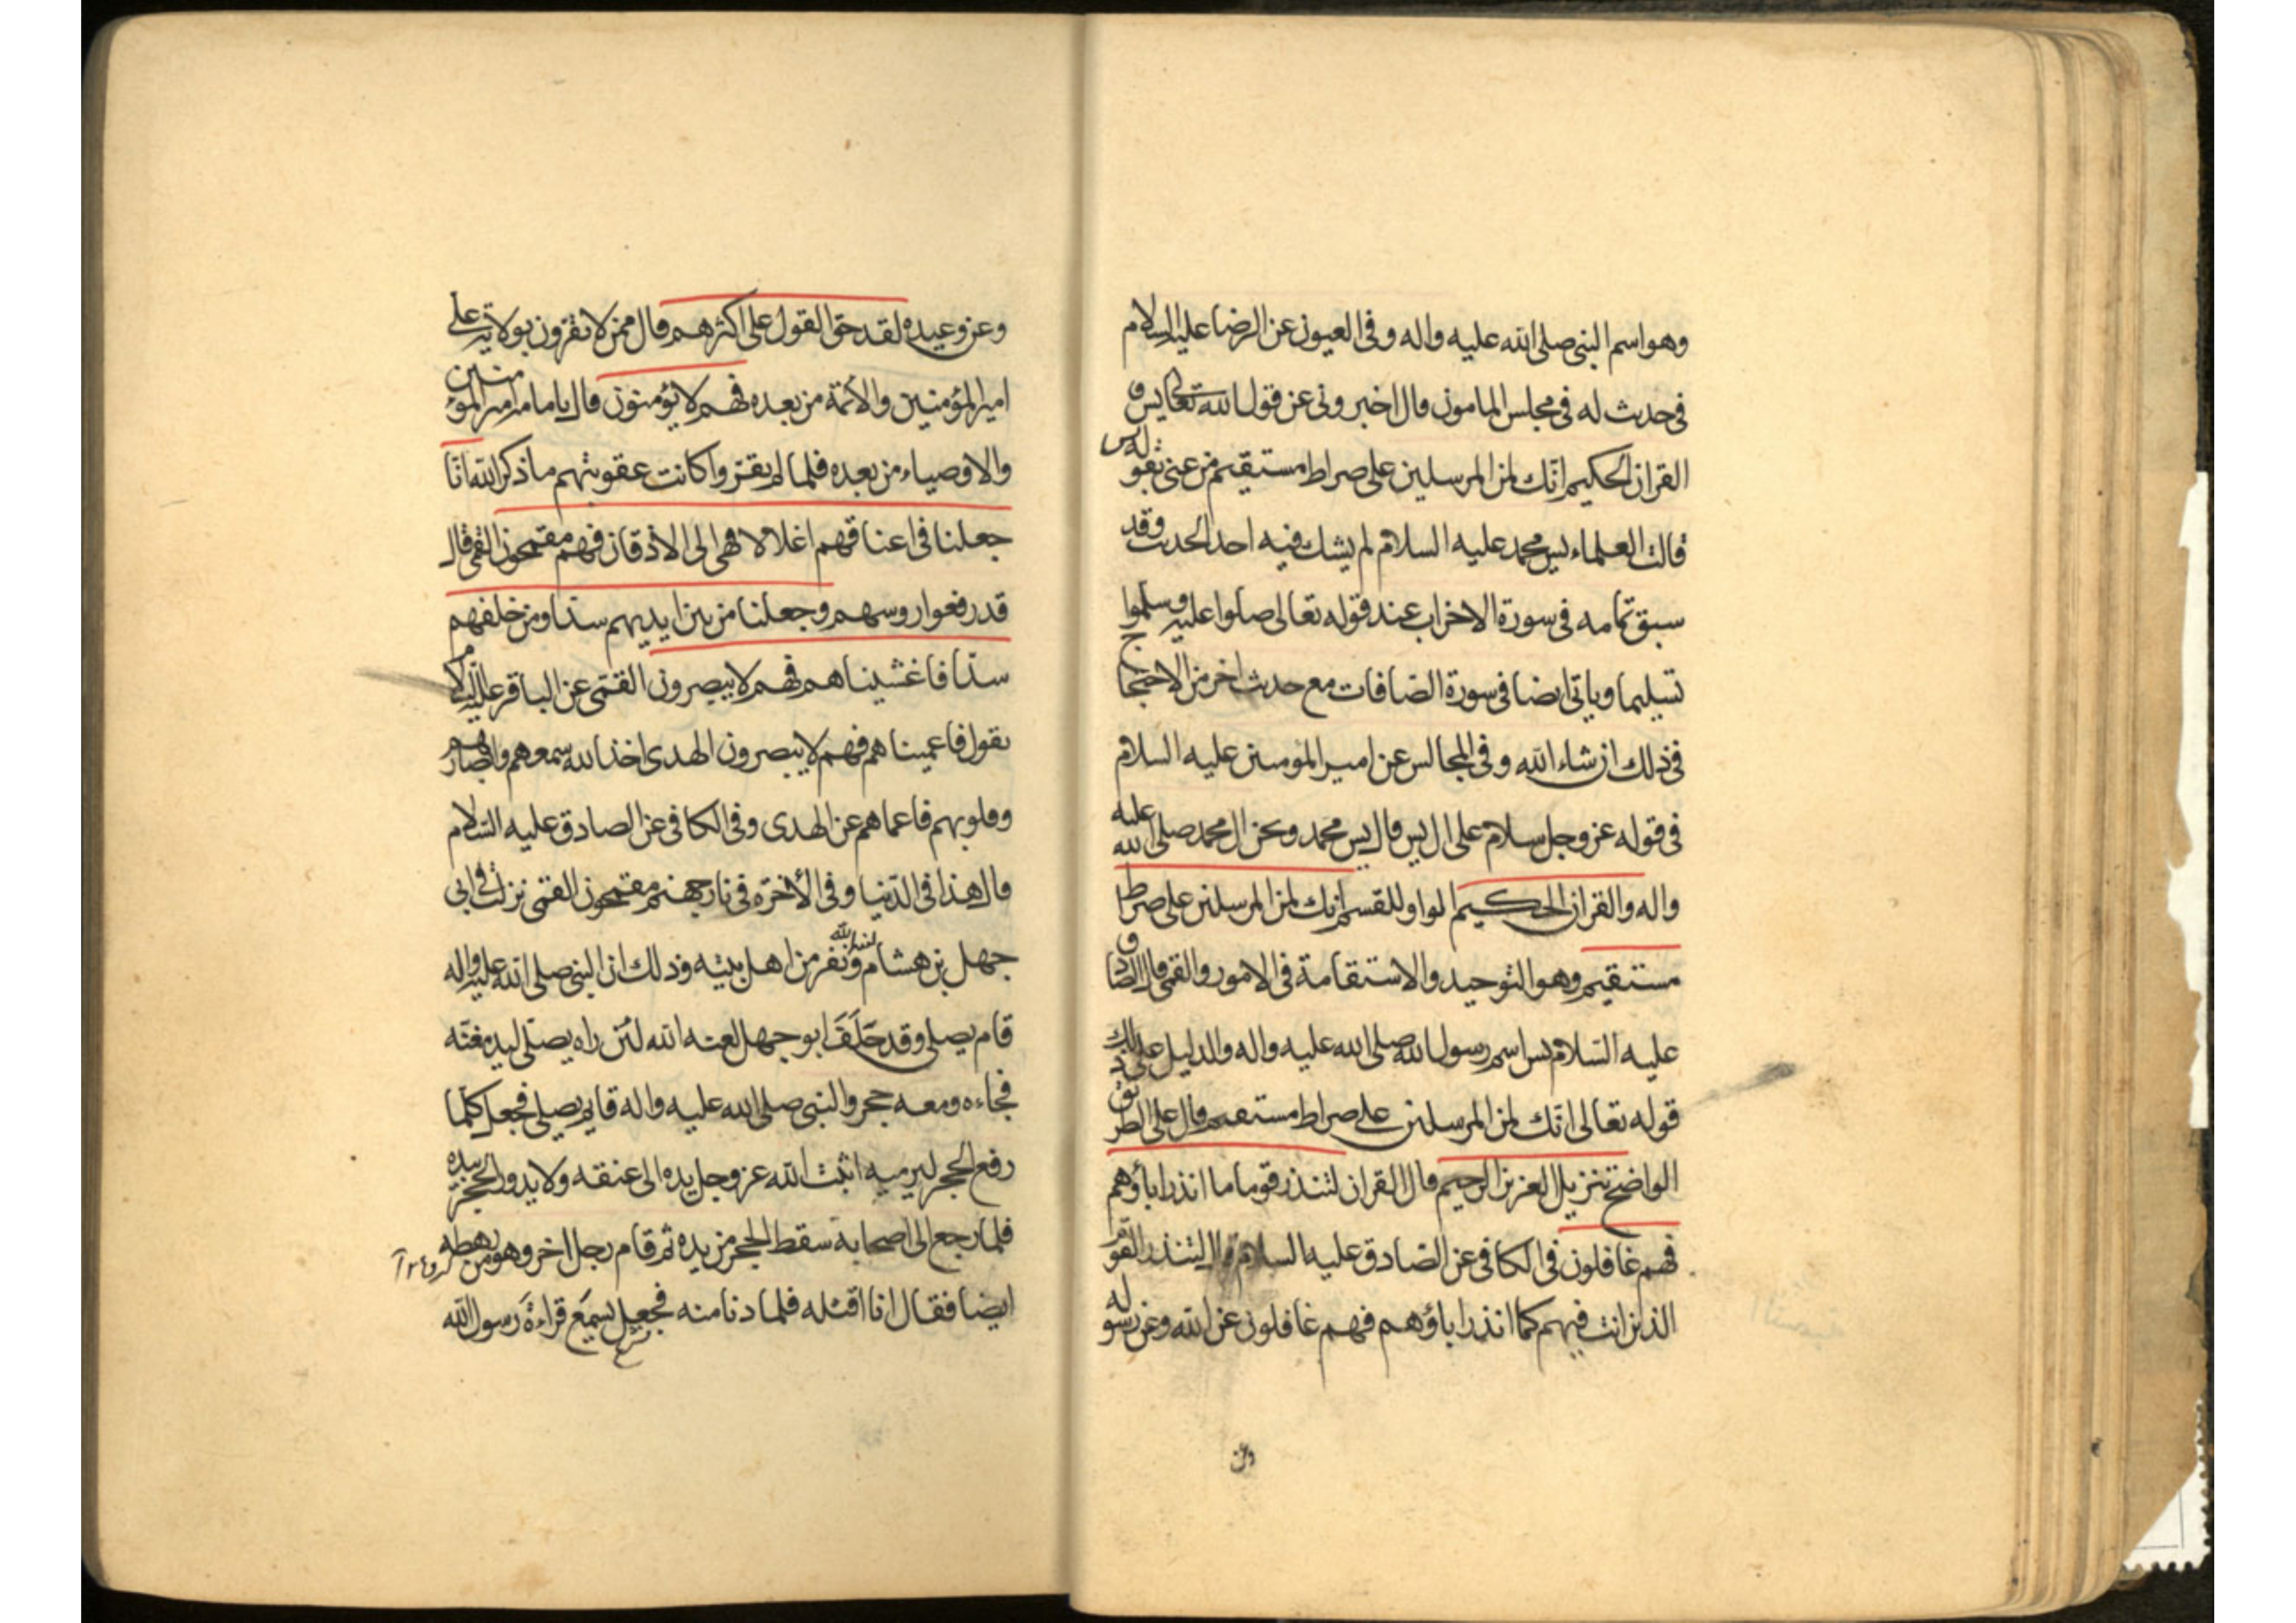 وهو اسم النبي صلى الله عليه واله وفي العيون عن الرضا عليه السلام
في حديث له في مجلس المامون قال اخبروني عن قول الله تعالى يس و
القران الحكيم انّك لمن المرسلين على صراط مستقيم فمن عنى بقوله يس
قالت العلماء يس محمد عليه السلام لم يشك فيه احد الحديث وقد
سبق تمامه في سورة الاحزاب عند قوله تعالى صلوا عليه وسلموا
تسليما وياتي ايضا في سورة الصافات مع حديث اخر من الاحتجاج
في ذلك ان شاء الله وفي المجالس عن امير المؤمنين عليه السلام
في قوله عز وجل سلام على ال يس قال يس محمد ونحن ال محمد صلى الله عليه
واله والقران الحكيم الواو للقسم انك لمن المرسلين على صراط
مستقيم وهو التوحيد والاستقامة في الامور والقمي قال الصادق
عليه السّلام يس اسم رسول الله صلى الله عليه واله والدليل على ذلك
قوله تعالى انّك لمن المرسلين على صراط مستقيم قال على الطريق
الواضح تنزيل العزيز الرحيم قال القران لتنذر قوما ما انذر اباؤهم
فهم غافلون في الكافي عن الصادق عليه السلام قال لتنذر القوم
الذين انت فيهم كما انذر اباؤهم فهم غافلون عن الله وعن رسوله
وعن
وعن وعيده لقد حق القول على اكثرهم قال ممن لا يقرون بولاية على
امير المؤمنين والائمة من بعده فهم لا يؤمنون قال بامامة امير المؤمنين
والاوصياء من بعده فلما لم يقروا كانت عقوبتهم ما ذكر الله انّا
جعلنا في اعناقهم اغلالا فهي الى الاذقان فهم مقمحون القمي قال
قد رفعوا روسهم وجعلنا من بين ايديهم سدّا ومن خلفهم
سدّا فاغشيناهم فهم لا يبصرون القمّي عن الباقر عليه السّلام
يقول فاعميناهم فهم لا يبصرون الهدى اخذ الله سمعهم وابصارهم
وقلوبهم فاعماهم عن الهدى وفي الكافي عن الصادق عليه السّلام
قال هذا في الدّنيا وفي الأخرة في نار جهنم مقمحون القمّي نزلت في ابي
جهل بن هشام لعنه الله ونفر من اهل بيته وذلك ان النبي صلى الله عليه واله
قام يصلي وقد حَلَفَ ابو جهل لعنه الله لئن راه يصلّي ليدمغنّه
فجاءه ومعه حجر والنبي صلى الله عليه واله قايم يصلي فجعل كلّما
رفع الحجر ليرميه اثبت الله عز وجل يده الى عنقه ولا يدور الحجر بيده
فلما رجع الى اصحابه سقط الحجر من يده ثم قام رجل اخر وهو من رهطه
ايضا فقال انا اقتله فلما دنا منه فجعل يسمع قراءة رسول الله